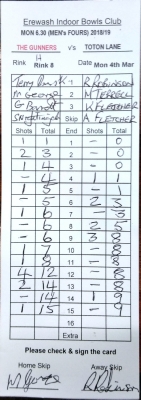 Erewash Indoor Bowls Club
MON 6.30 (MEN's FOURS) 2018/19
THE GUNNERS v's TOTON LANE
Rink H Rink 8 Mon 4th Mar
1 R ROBINSON
M George 2 M TERRELL
G Barrett 3 K FLETCHER
Skip A FLETCHER
Shots Total End Shots Total
1 1 1 - 0
2 3 2 - 0
1 4 3 - 0
- 4 4 1 1
1 5 5 - 1
- 5 6 2 3
1 6 7 - 3
- 6 8 2 5
- 6 9 3 8
1 7 10 - 8
1 8 11 - 8
4 12 12 - 8
2 14 13 - 8
- 14 14 1 9
1 15 15 - 9
16
Extra
Please check & sign the card
Home Skip Away Skip
R Robinson